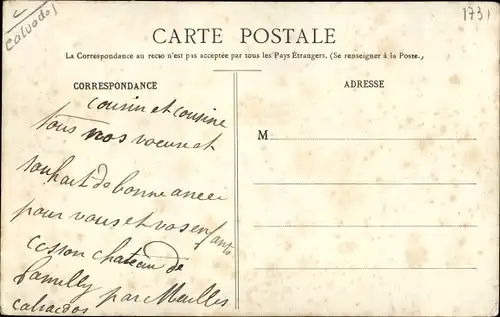 Calvados
1731
CARTE POSTALE
La Correspondance au recto n'est pas acceptée par tous les Pays Étrangers. (Se renseigner à la Poste.)
CORRESPONDANCE
ADRESSE
M
cousin et cousine
tous nos voeux et
souhait de bonne année
pour vous et vos enfants
cosson chateau de
familly par Meulles
calvados